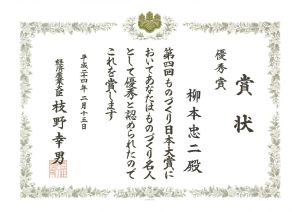 賞状
優秀賞
柳本忠二殿
第四回ものづくり日本大賞に
おいてあなたはものづくり名人
として優秀と認められたので
これを賞します
平成二十四年二月十五日
経済産業大臣 枝野幸男